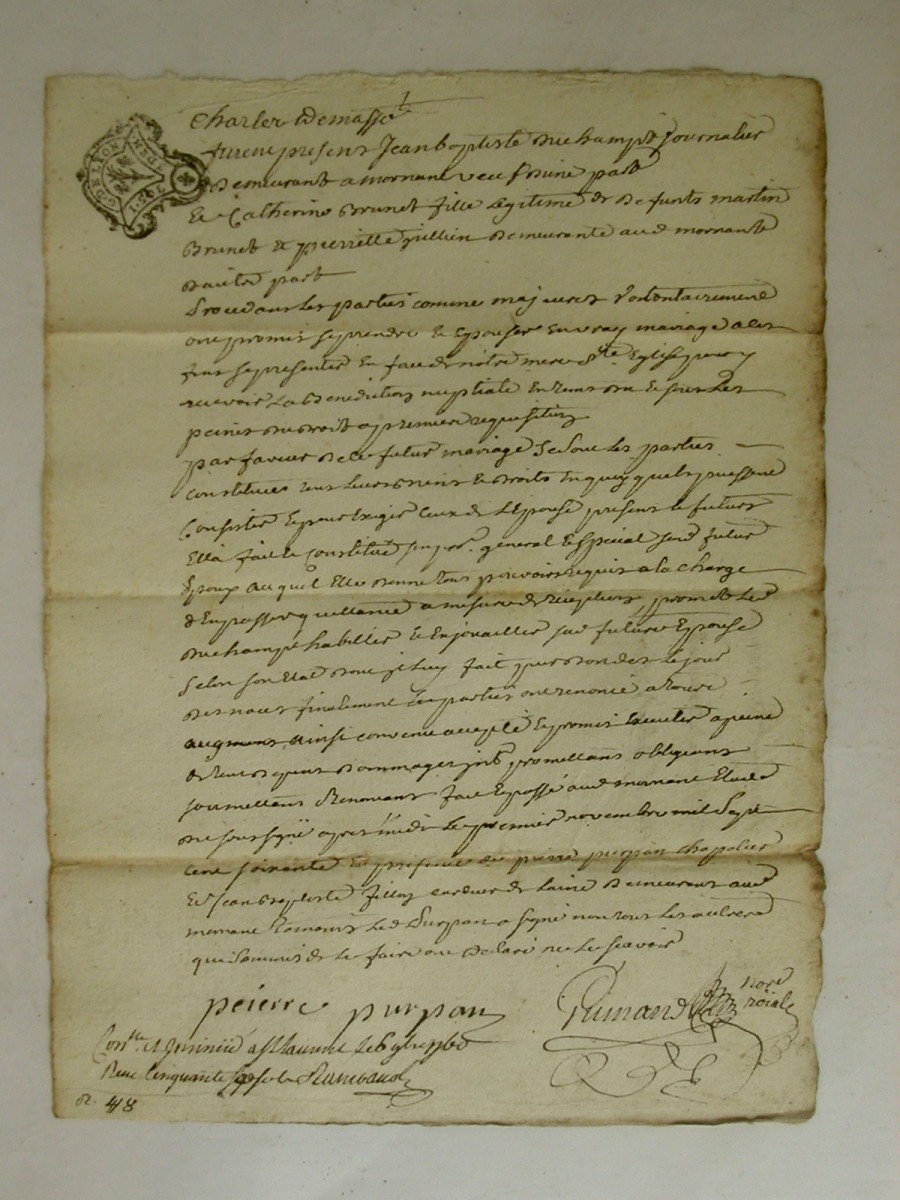 GEN. DE LYON
furent present Jean baptiste Duchampt Journalier
Demeurant a mornant veuf d'une part
Et Catherine Brunet fille Legitime de Defunts martin
Brunet et pierrette Jullien Demeurante aud mornant
d'autre part
Lesquelles parties comme majeures volontairement
ont promis se prendre et Epouser En vray mariage a ces
fins se presenter En face de notre mere Ste Eglise pour y
recevoir La Benediction nuptiale
peines du droit a premiere requisition
par faveur de ce futur mariage se sont Les parties
constitués tous leurs Biens et droits En quoy quels puissent
Consister Et pour Exiger Ceux de L'Epouse presents et futurs
Ella fait et Constitué son pr. general et special sond futur
Epoux auquel Elle donne tous pouvoirs requis a la charge
d'En passer quittance a mesure de reception, promet Led
Duchampt habiller et Enjoualler sad future Epouse
Selon son Etat dont il luy fait pur don des Le jour
des noces finalement Les parties ont renoncé a tout
augment, ainsi convenu accepté Et promis Executer a peine
de tous depens dommages promettans obligeans
soumettans Renonçant fait Et passé aud mornant Etude
du soussigné apres midi Le premier novembre mil sept
cent soixante En presence de pierre purpan chapelier
Et Jean Baptiste fillon cardeur de laine demeurant aud
mornant temoins Led Purpan a signé non tous Les autres
qui sommés de Le faire ont declaré ne Le sçavoir
peierre purpan
notre roiale
Conlle et Insinué a St Laurent Le 6 9bre 1760
Reçu Cinquante
48